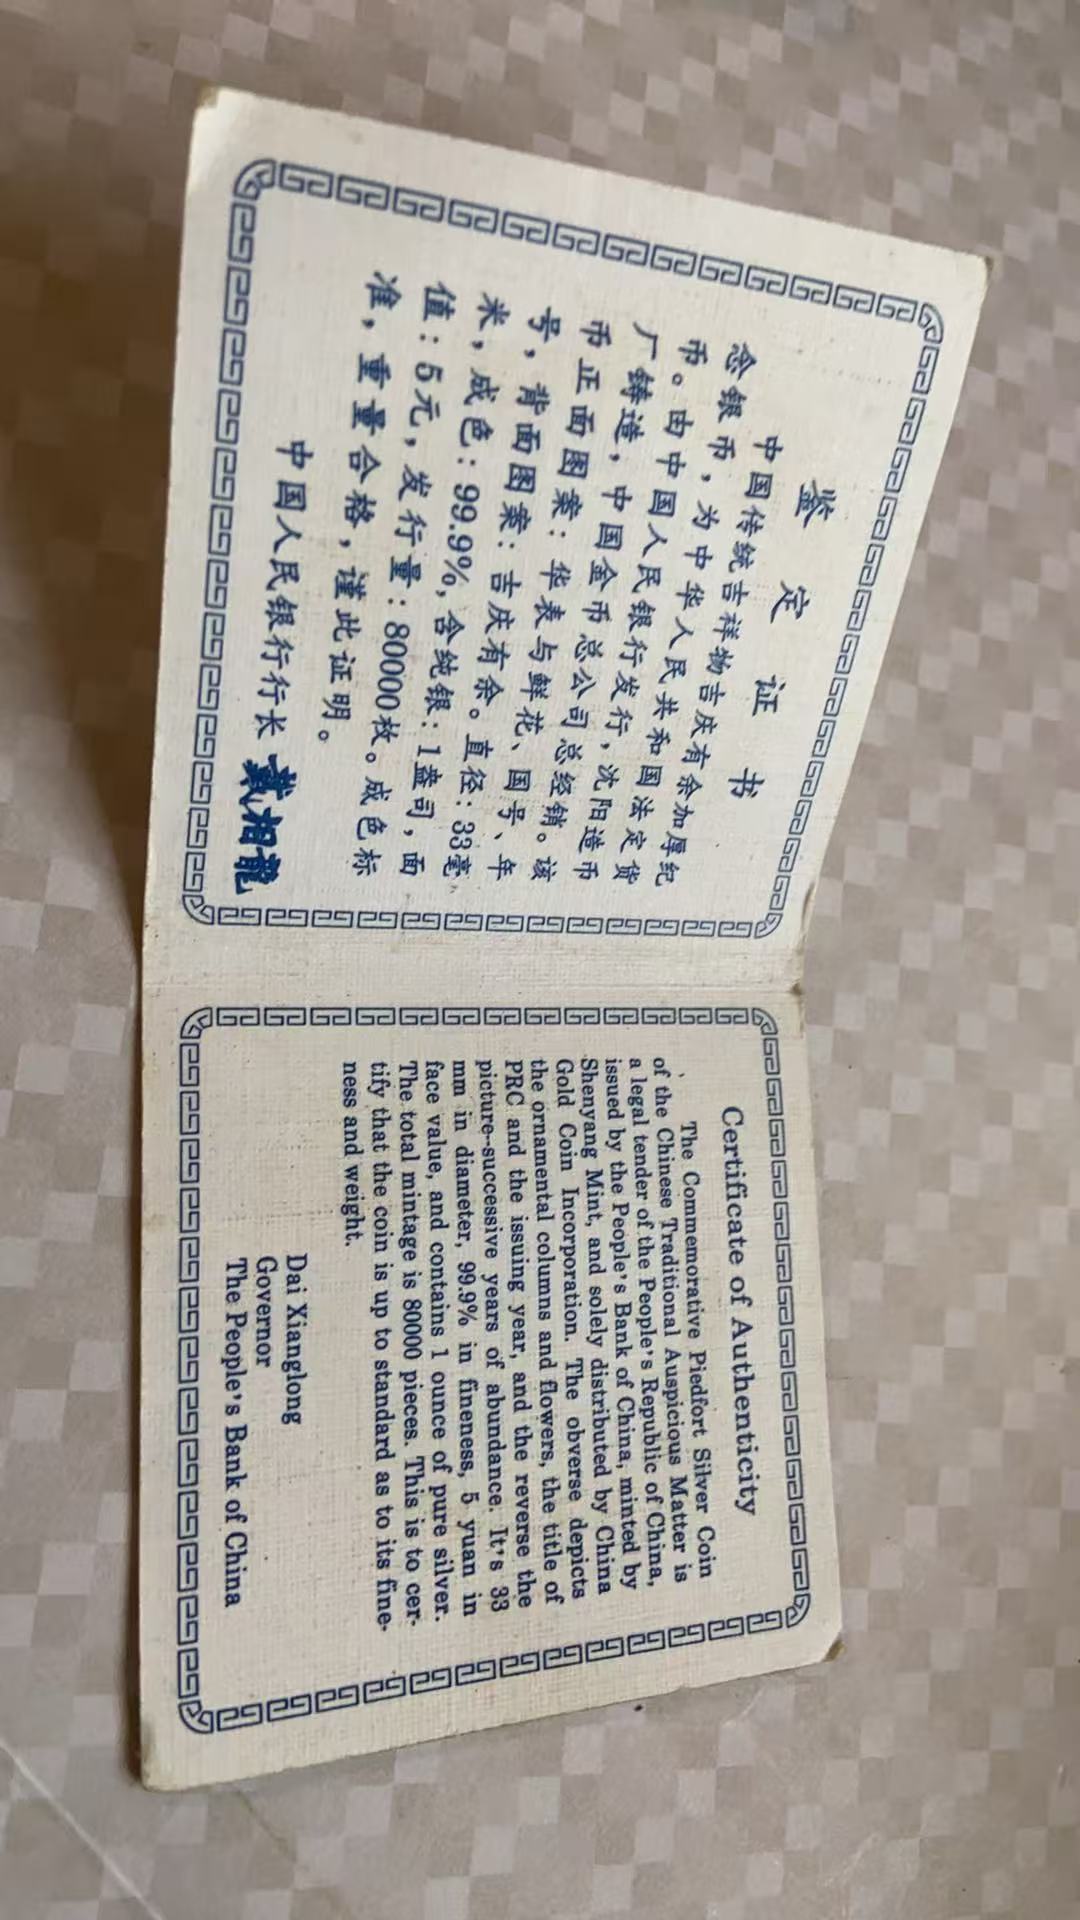 鉴定证书
中国传统吉祥物吉庆有余加厚纪
念银币，为中华人民共和国法定货
币。由中国人民银行发行，沈阳造币
厂铸造，中国金币总公司总经销。该
币正面图案：华表与鲜花、国号、年
号，背面图案：吉庆有余。直径：33毫
米，成色：99.9%，含纯银：1盎司，面
值：5元，发行量：80000枚。成色标
准，重量合格，谨此证明。
中国人民银行行长 戴相龍
Certificate of Authenticity
The Commemorative Piedfort Silver Coin
of the Chinese Traditional Auspicious Matter is
a legal tender of the People's Republic of China,
issued by the People's Bank of China, minted by
Shenyang Mint, and solely distributed by China
Gold Coin Incorporation. The obverse depicts
the ornamental columns and flowers, the title of
PRC and the issuing year, and the reverse the
picture-successive years of abundance. It's 33
mm in diameter, 99.9% in fineness, 5 yuan in
face value, and contains 1 ounce of pure silver.
The total mintage is 80000 pieces. This is to cer-
tify that the coin is up to standard as to its fine-
ness and weight.
Dai Xianglong
Governor
The People's Bank of China